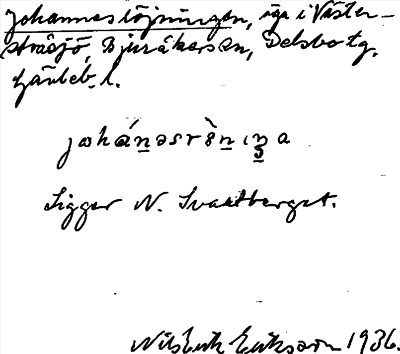 Johannesröjningen, äga i Väster-
stråsjö, Bjuråkers sn, Delsbo tg,
Gävleb. l.
johánəsrö̀nıŋa
Ligger N. Svartberget.
Nils Erik Eriksson 1936.